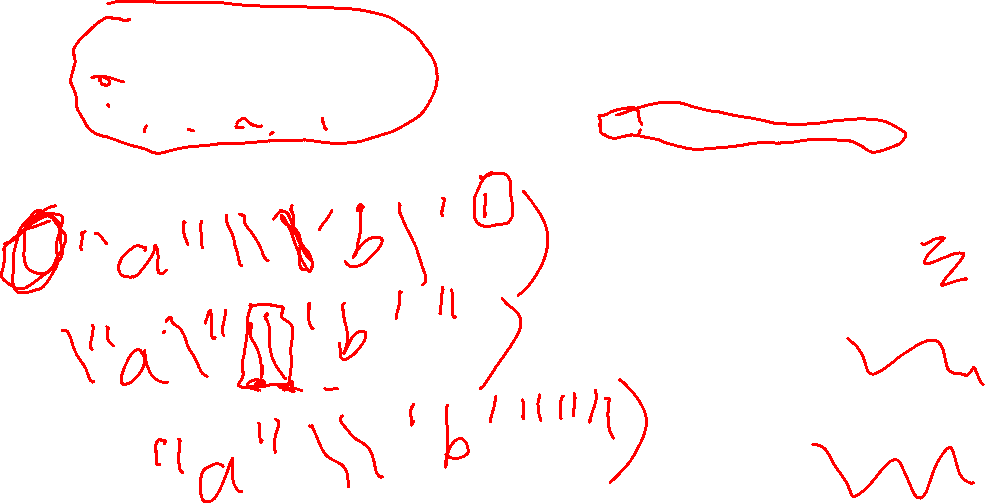 "a"\\'b\'')
\"a\"\\'b'")
"a"\\'b'""")